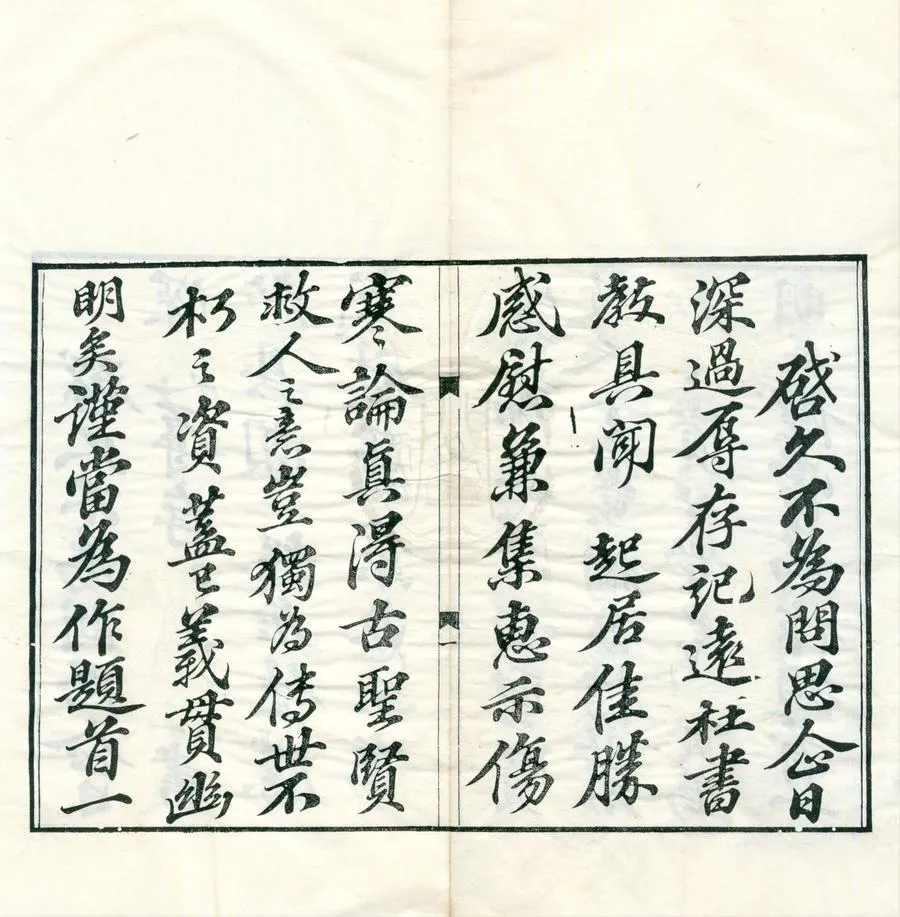 啟久不為問思企日
深過辱存記遠枉書
教具聞起居佳勝
感慰兼集惠示傷
寒論真得古聖賢
救人之意豈獨為傳世不
朽之資蓋已義貫幽
明矣謹當為作題首一
一